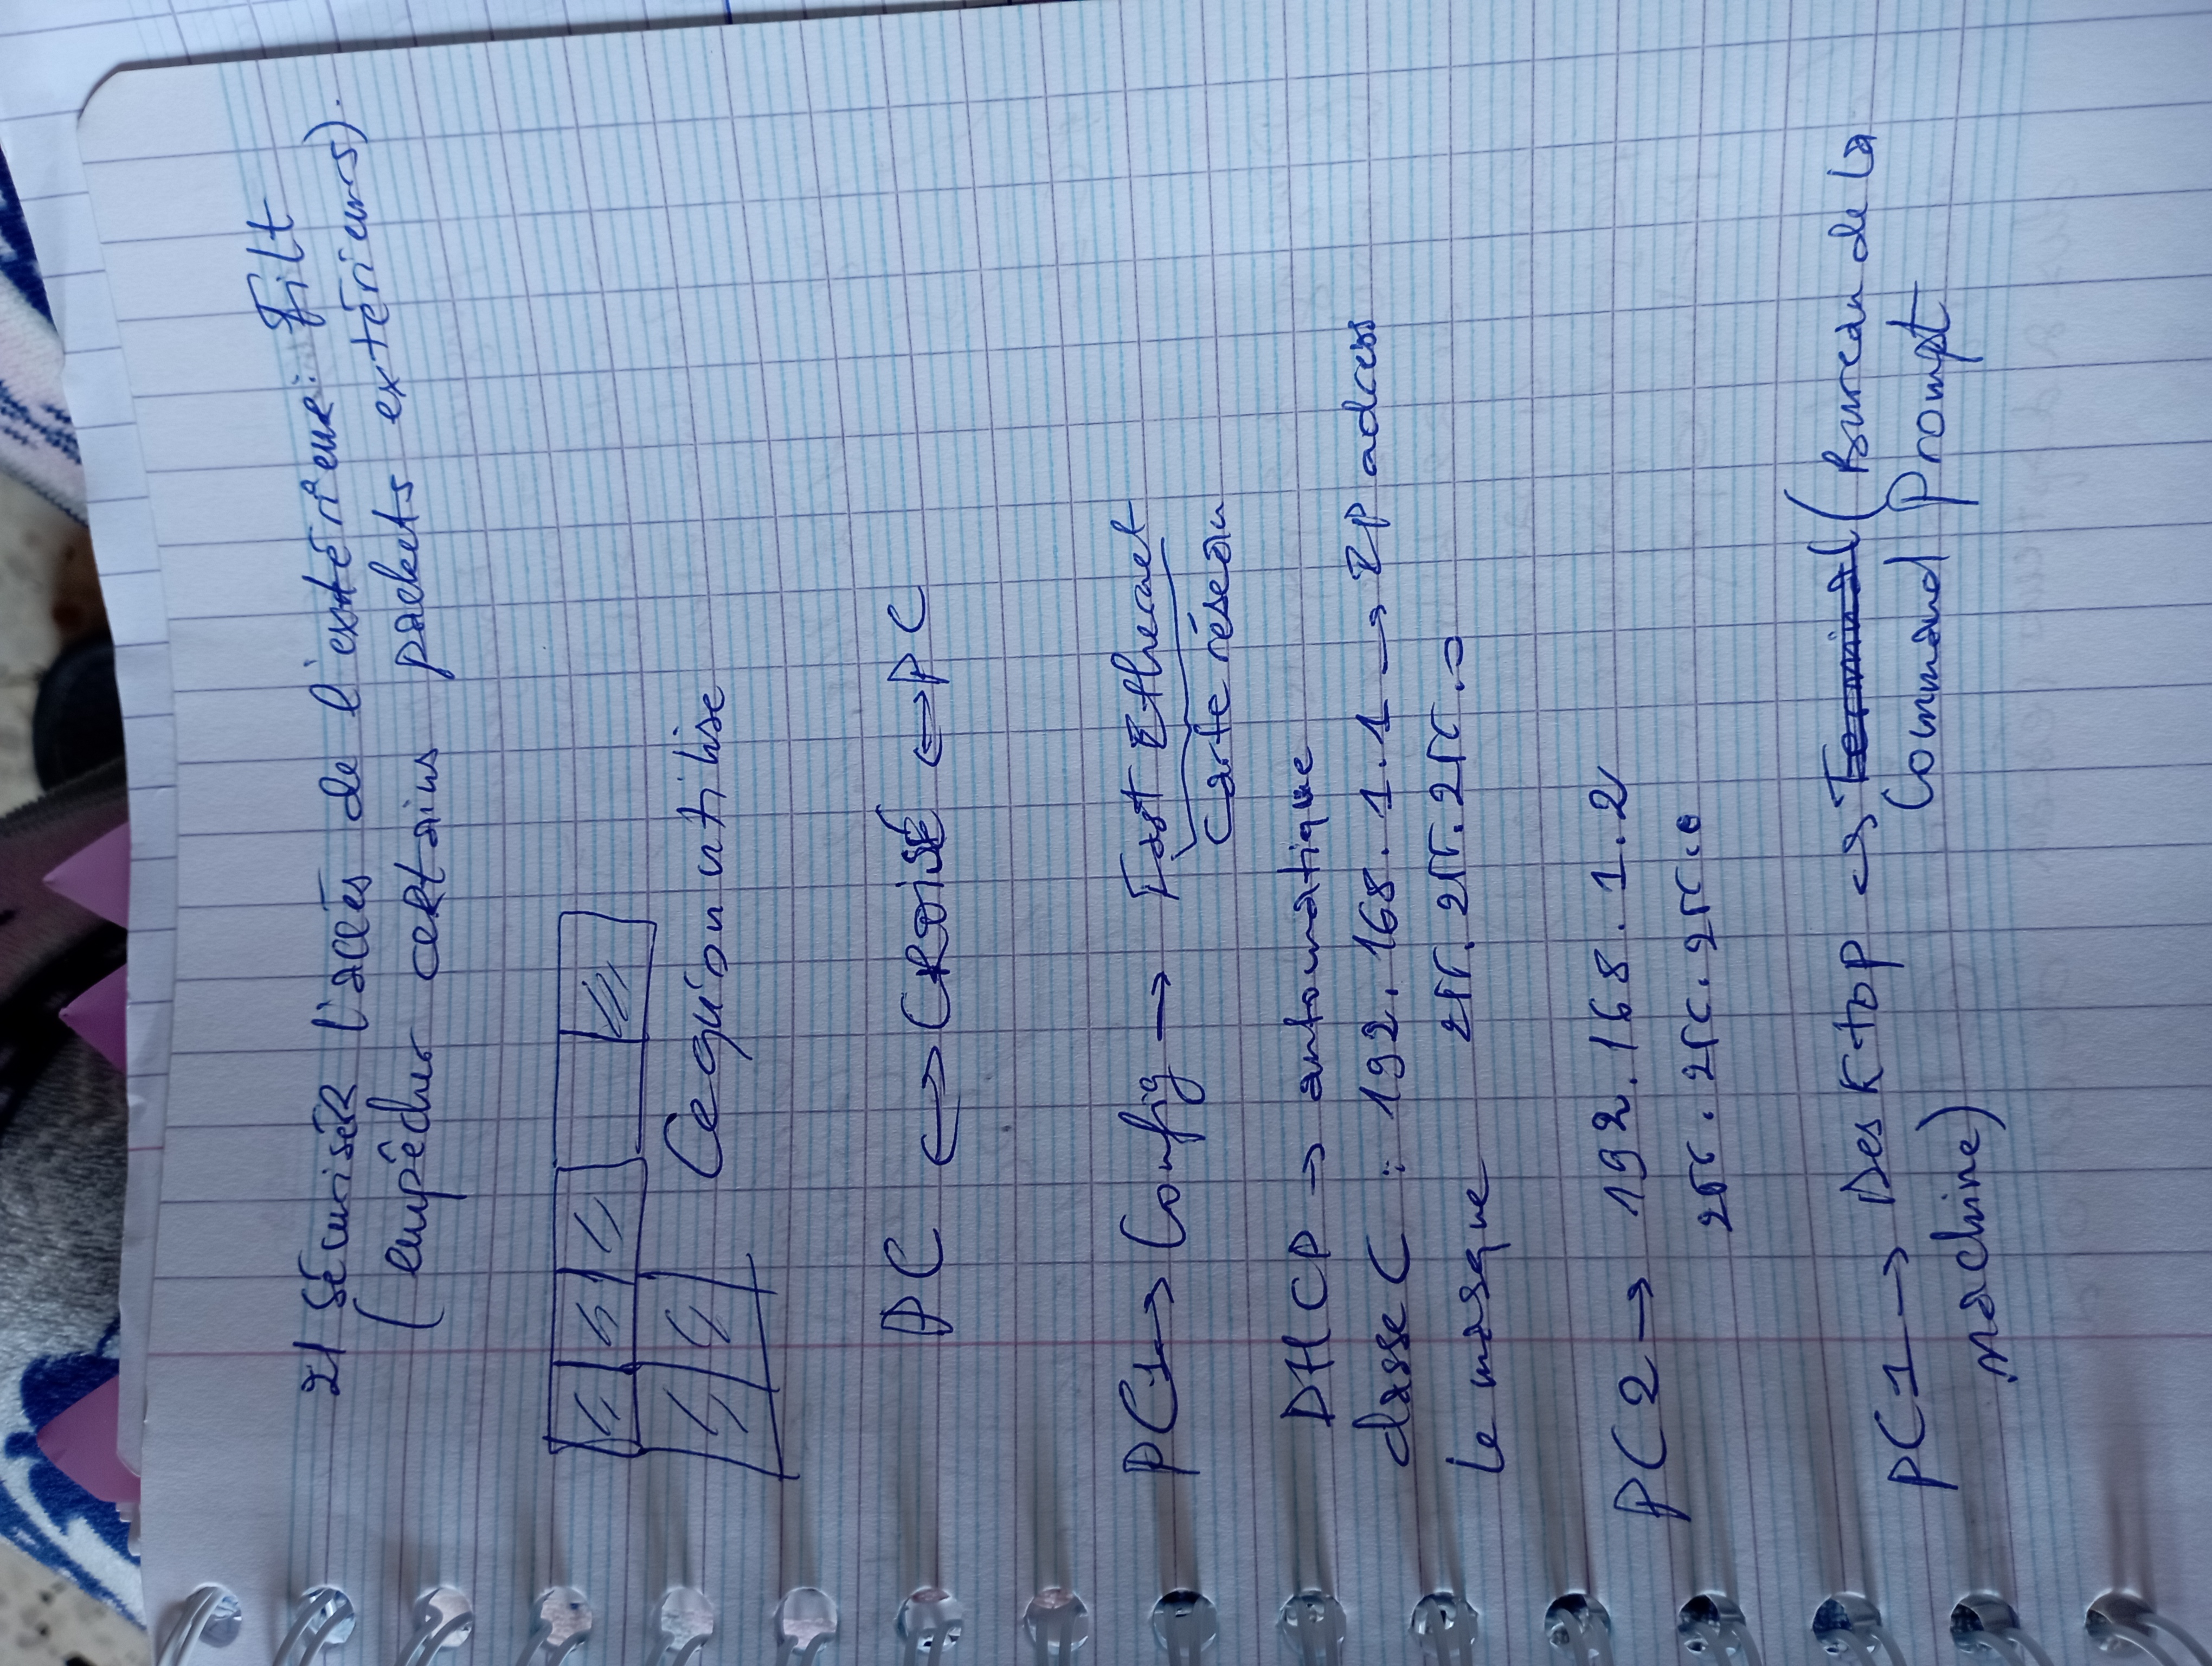 2/ SécurisER l'accès de l'extérieur: Filt
(empêcher certains packets extérieurs).
Ce qu'on utilise
PC ↔ CROiSÉ ↔ PC
PC1 → Config → Fast Ethernet
Carte réseau
DHCP → automatique
classe C : 192.168.1.1 → IP adress
Le masque 255.255.255.0
PC2 → 192.168.1.2
255.255.255.0
PC1 → Desktop → Terminal (Bureau de la
machine) Command Prompt